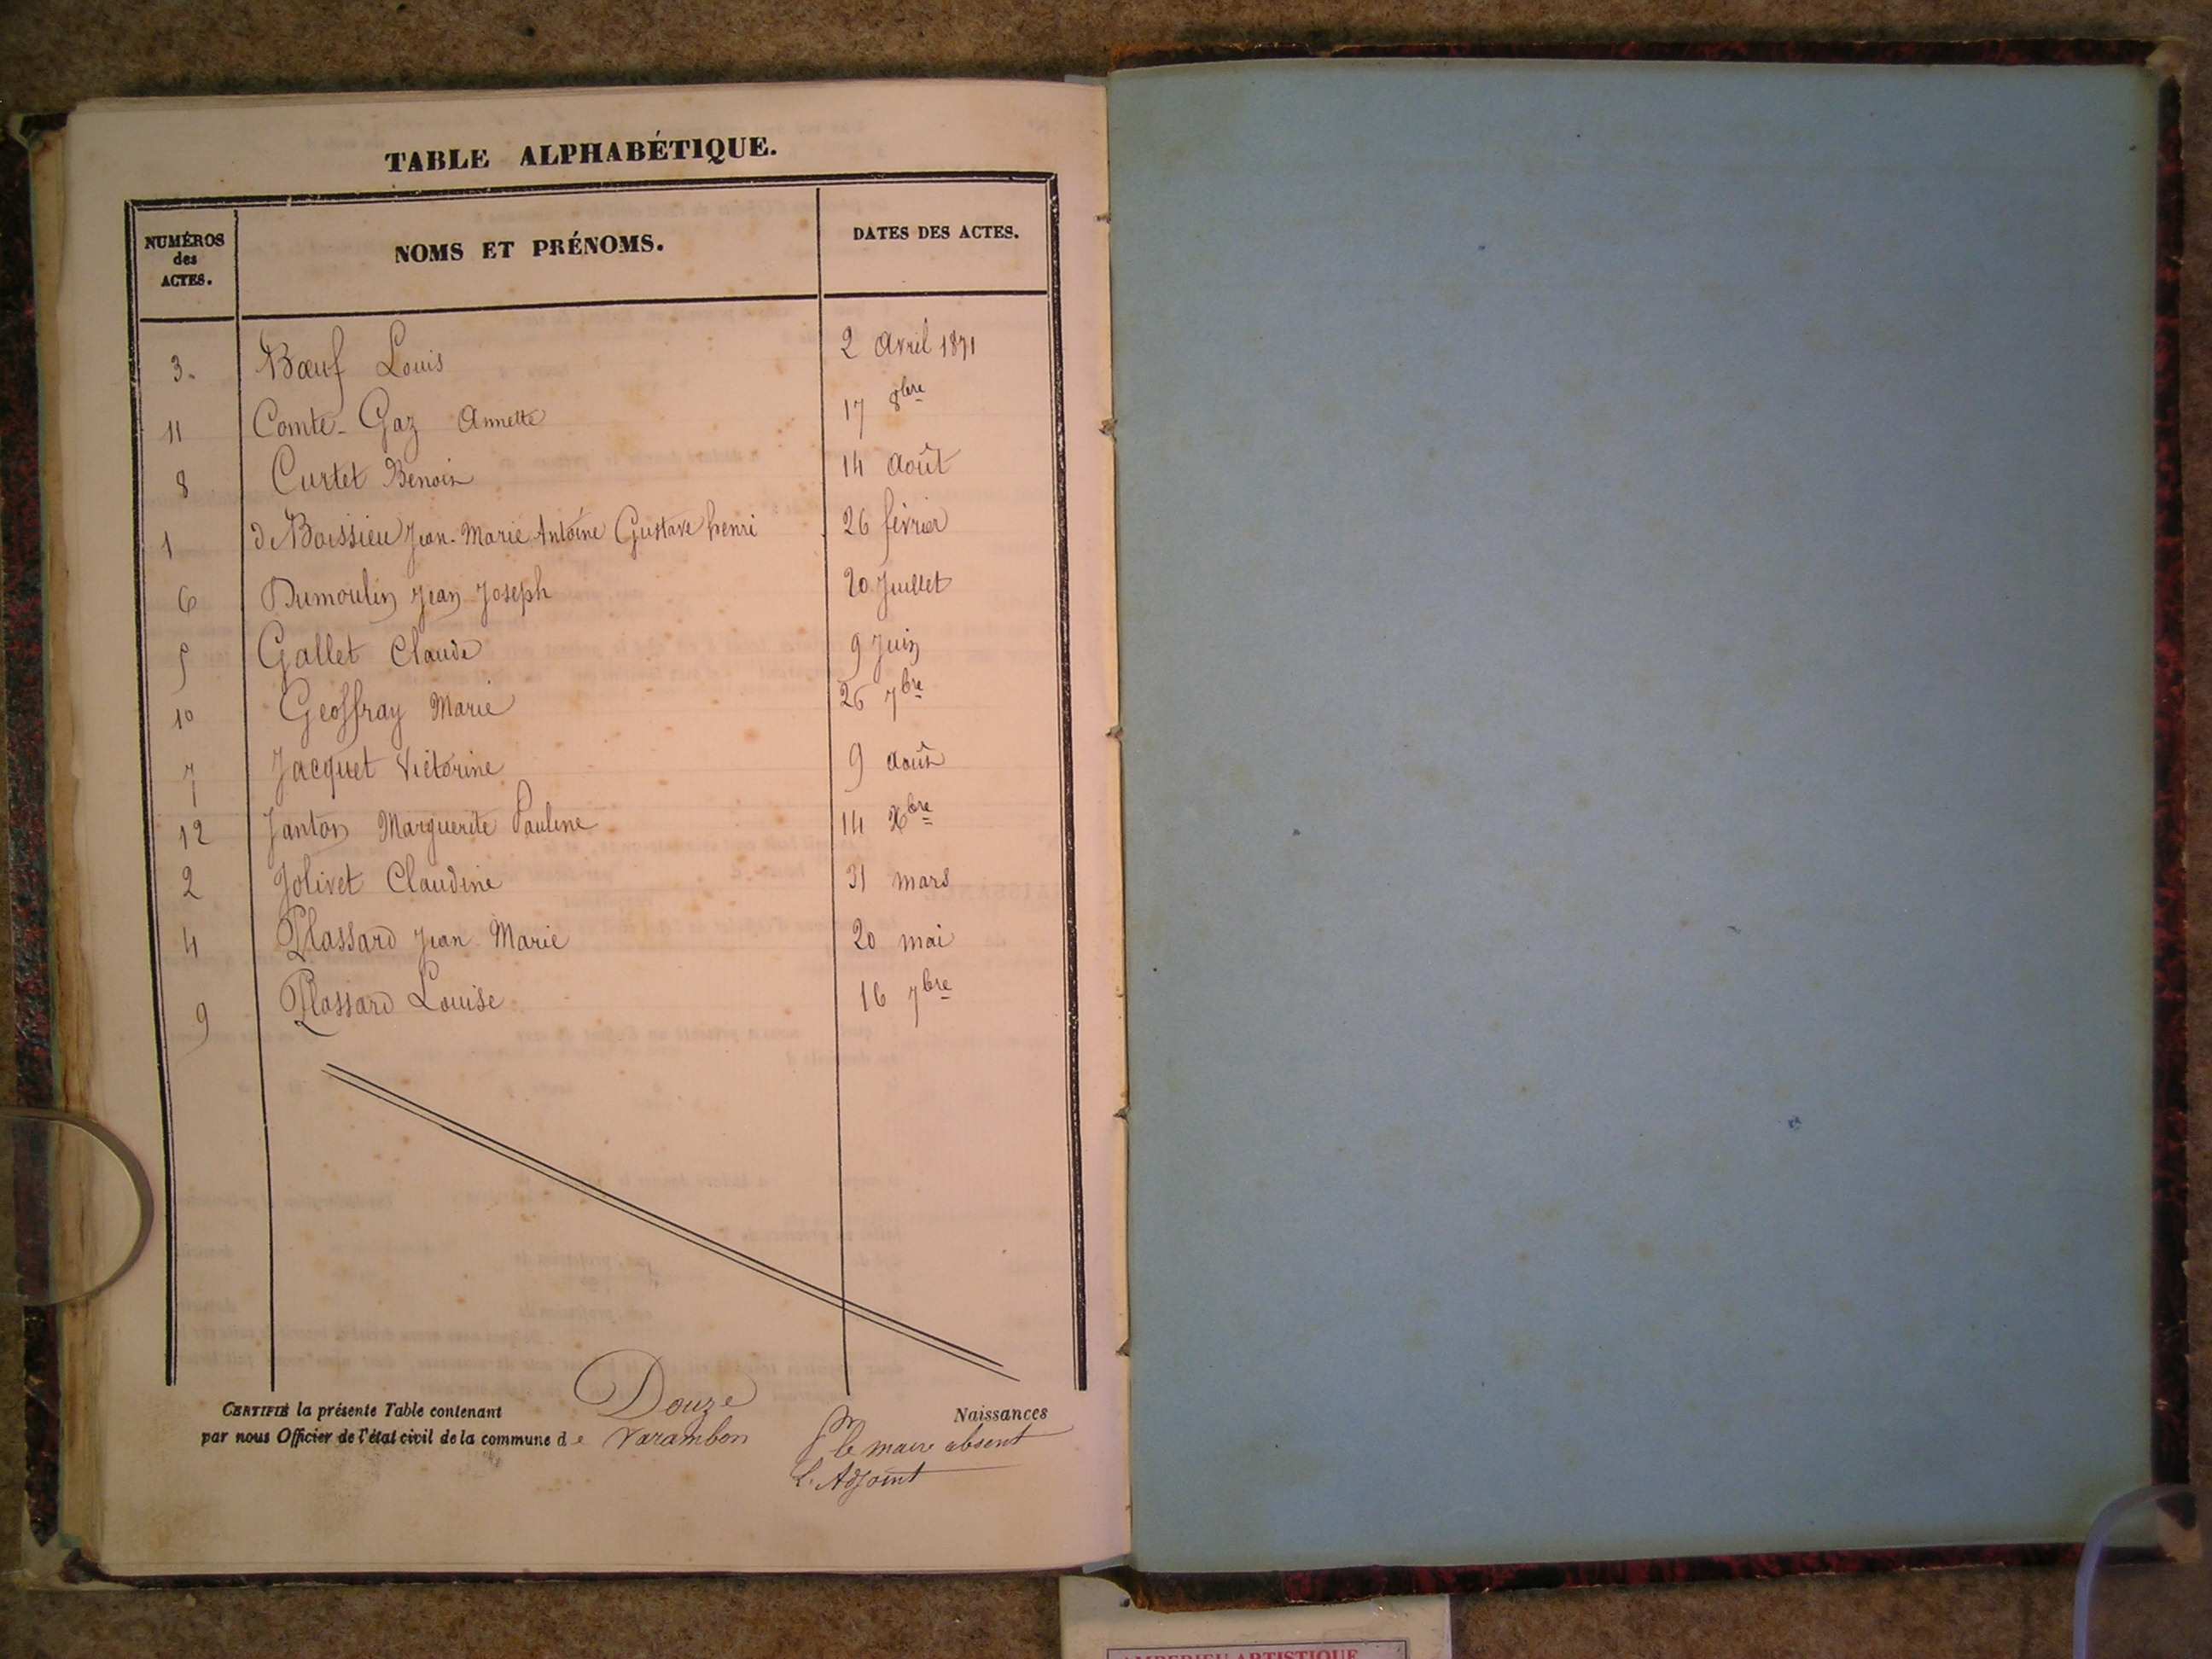 TABLE ALPHABÉTIQUE.
NUMÉROS des ACTES. NOMS ET PRÉNOMS. DATES DES ACTES.
3. Bœuf Louis 2 Avril 1871
11 Comte-Gaz Annette 17 8bre
8 Curtet Benoin 14 Août
1 de Boissieu Jean-Marie Antoine Gustave henri 26 février
6 Dumoulin Jean Joseph 20 Juillet
5 Gallet Claude 9 Juin
10 Geoffray Marie 26 7bre
7 Jacquet Victorine 9 août
12 Janton Marguerite Pauline 14 Xbre
2 Jolivet Claudine 31 mars
4 Plassard Jean Marie 20 mai
9 Plassard Louise 16 7bre
CERTIFIÉ la présente Table contenant Douze Naissances
par nous Officier de l'état civil de la commune de Varambon
Pr le maire absent
L'Adjoint
AMBERIEU ARTISTIQUE